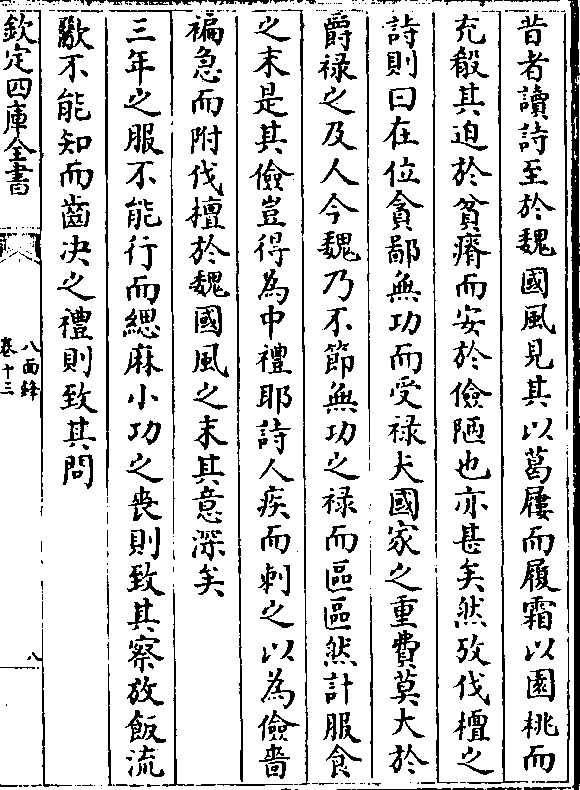 昔者讀詩至於魏國風見其以葛屨而履霜以園桃而
充殽其迫於貧瘠而安於儉陋也亦甚矣然攷伐檀之
詩則曰在位貪鄙無功而受祿夫國家之重費莫大於
爵祿之及人今魏乃不節無功之祿而區區然計服食
之末是其儉豈得為中禮耶詩人疾而刺之以為儉嗇
褊急而附伐檀於魏國風之末其意深矣
三年之服不能行而緦麻小功之喪則致其察放飯流
歠不能知而齒决之禮則致其問
欽定四庫全書
八面鋒
卷十三
八